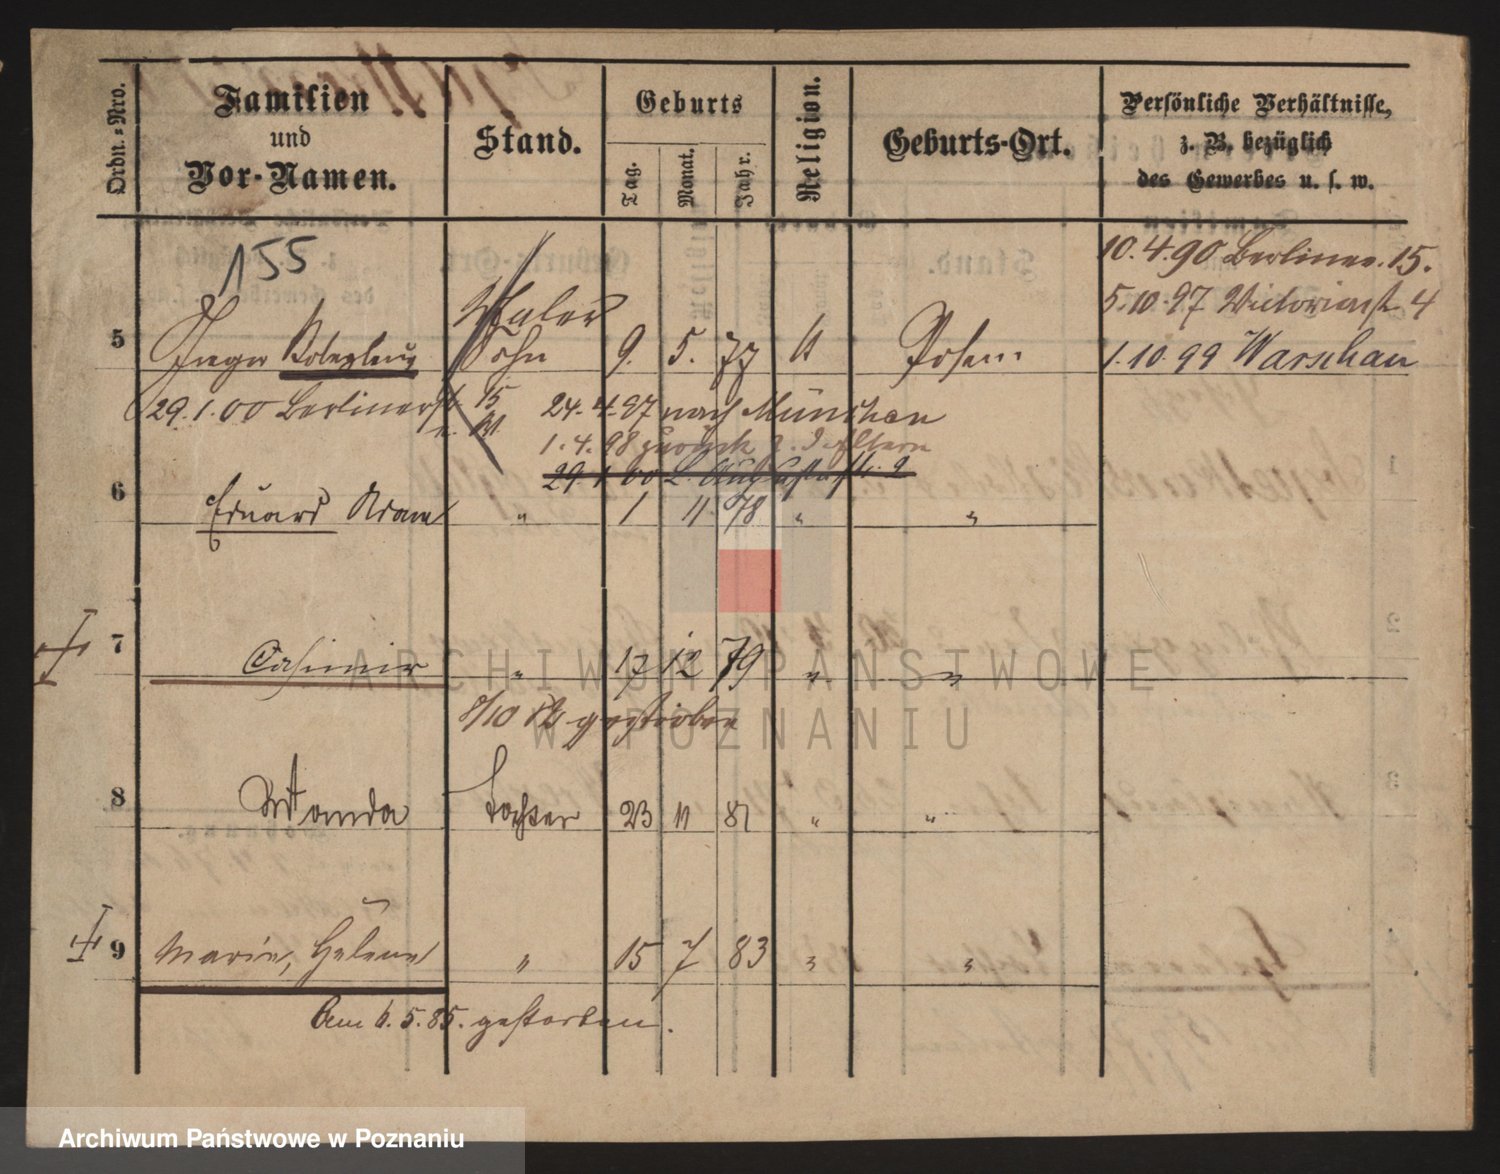 Ordn.-Nro.
Familien
und
Vor-Namen.
Stand.
Geburts
Tag.
Monat.
Jahr.
Religion.
Geburts-Ort.
Persönliche Verhältnisse,
z. B. bezüglich
des Gewerbes u. s. w.
155
10.4.90 Berliner. 15.
5.10.97 Victoriast 4
Maler
5 Sohn 9. 5. 77 Posen 1.10.99 Warschau
29.1.00 Berlinerst 15
24.4.97 nach München
1.4.98 zurück z. d. Eltern
6 Eduard Adam " 1 11 78 " "
7 Casimir " 17 12 79 " "
8/10 gestorben
8 Wanda Tochter 23 11 81 " "
9 Marie, Helene " 15 7 83 " "
Am 6.5.85. gestorben.
ARCHIWUM PAŃSTWOWE
W POZNANIU
Archiwum Państwowe w Poznaniu